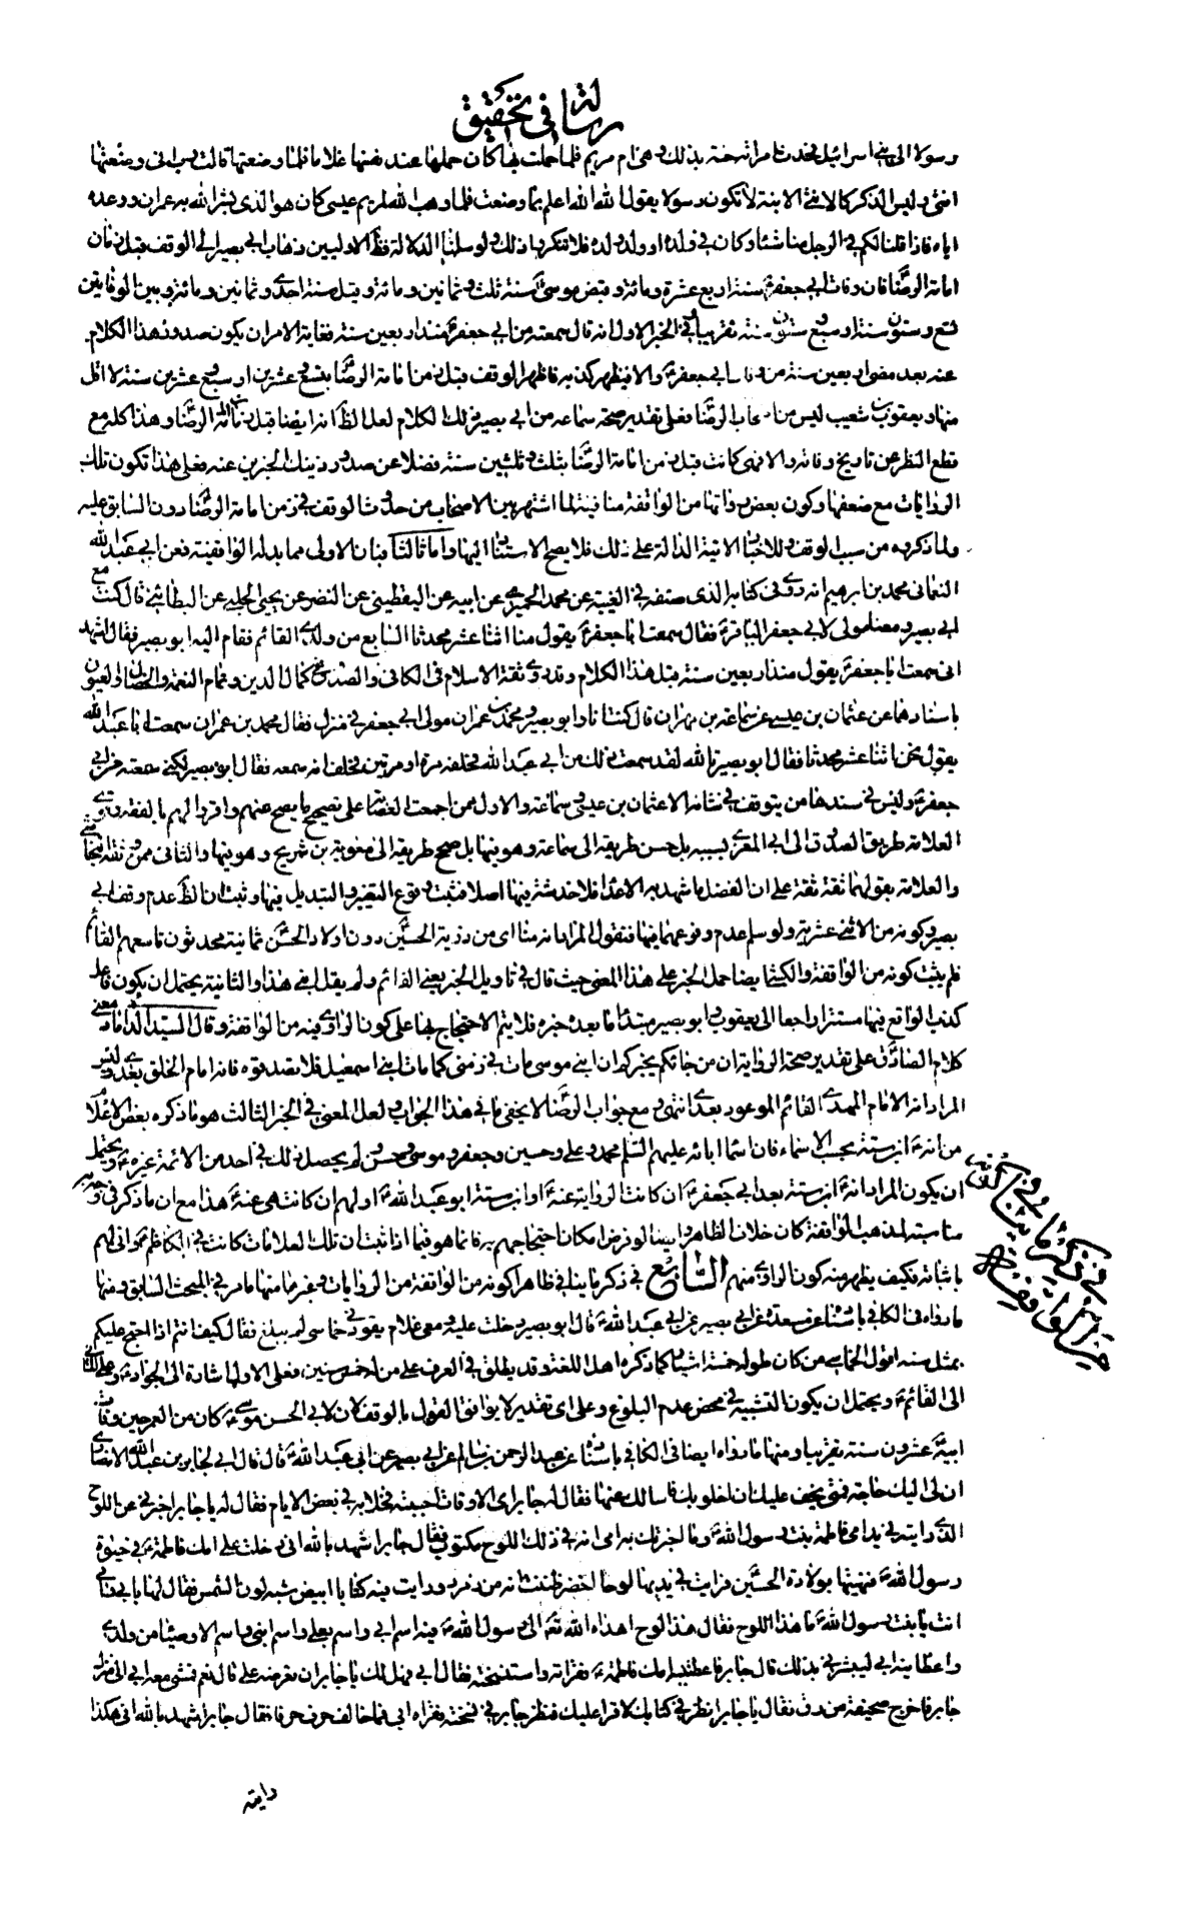 رسالة في تحقيق
رسولا الى بني اسرائيل فحدث امراته حنة بذلك وهي ام مريم فلما حملت بها كان حملها عند نفسها غلاما فلما وضعتها قالت رب اني وضعتها
انثى وليس الذكر كالانثى الابنة لا تكون رسولا يقول الله الله اعلم بما وضعت فلما وهب الله لمريم عيسى كان هو الذي بشر الله به عمران ووعده
اياه فاذا قلنا لكم في الرجل منا شيئا وكان في ولده او ولد ولده فلا تنكروا ذلك ولو سلمنا الدلالة فظ الاوليين ذهاب ابي بصير الى الوقف قبل زمان
امامة الرضا فان وفات ابي جعفر سنة اربع عشرة ومائة وقبض موسى سنة ثلث وثمانين ومائة وقيل سنة احدى وثمانين ومائة وبين الوفاتين
تسع وستون سنة او سبع وستون سنة تقريبا وفي الخبر الاول انه قال سمعته من ابي جعفر منذ اربعين سنة فغاية الامر ان يكون صدور هذا الكلام
عنه بعد مضي اربعين سنة من وفات ابي جعفر والا فيظهر كذبه فاظهر الوقف قبل زمن امامة الرضا بتسع عشرين او سبع عشرين سنة لا اقل
منها ويعقوب بن شعيب ليس من اصحاب الرضا فعلى تقدير صحة سماعه من ابي بصير ذلك الكلام لعل الظ انه ايضا قبل امامة الرضا وهذا كله مع
قطع النظر عن تاريخ وفاته والا فهي كانت قبل زمن امامة الرضا بثلث وثلثين سنة فضلا عن صدور ذينك الخبرين عنه فعلى هذا تكون تلك
الروايات مع ضعفها وكون بعض رواتها من الواقفة منافية لما اشتهر بين الاصحاب من حدوث الوقف في زمن امامة الرضا دون السابق عليه
ولما ذكروه من سبب الوقف وللاخبار الاتية الدالة على ذلك فلا يصح الاستناد اليها واما ثالثا فبان الاولى مما بدله الواقفية فعن ابي عبد الله
النعماني محمد بن ابرهيم انه روى في كتابه الذي صنفه في الغيبة عن محمد الحميري عن ابيه عن اليقطيني عن النضر عن يحيى الحلبي عن البطائني قال كنت مع
ابي بصير ومعنا مولى لابي جعفر الباقر فقال سمعت ابا جعفر يقول منا اثنا عشر محدثا السابع من ولدي القائم فقام اليه ابو بصير فقال اشهد
اني سمعت ابا جعفر يقول منذ اربعين سنة قبل هذا الكلام وقد روى ثقة الاسلام في الكافي والصدوق في كمال الدين وتمام النعمة والخصال والعيون
باسنادهما عن عثمان بن عيسى عن سماعة بن مهران قال كنت انا وابو بصير ومحمد بن عمران مولى ابي جعفر في منزل فقال محمد بن عمران سمعت ابا عبد الله
يقول نحن اثنا عشر محدثا فقال ابو بصير تالله لقد سمعت ذلك من ابي عبد الله فحلفه مرة او مرتين فحلف انه سمعه فقال ابو بصير لكني سمعته من ابي
جعفر وليس في سندها من يتوقف في شانه الا عثمان بن عيسى وسماعة والاول ممن اجمعت العصابة على تصحيح ما يصح عنهم واقروا لهم بالفقه
العلامة طريق الصدوق الى ابي المغرى بسببه بل حسن طريقه الى سماعة وهو فيها بل صحح طريقه الى معوية بن شريح وهو فيها والثاني ممن وثقه النجاشي
والعلامة بقولهما ثقة ثقة على ان الفضل ما شهد به الاعداء فلا خدشة فيها اصلا فثبت وقوع التغيير والتبديل فيها وثبت ان الظ عدم وقف ابي
بصير وكونه من الاثنى عشرية ولو سلم عدم وقوعهما فيها فنقول المراد انه منا اي من ذرية الحسين دون اولاد الحسن ثمانية محدثون تاسعهم القائم
فلم يثبت كونه من الواقفة والكشي ايضا حمل الخبر على هذا المعنى حيث قال في تاويل الخبر يعني القائم ولم يقل ابني هذا والثانية يحتمل ان يكون فاعل
كذب الواقع فيها مستترا راجعا الى يعقوب وابو بصير مبتدا ما بعده خبره فلا يتم الاحتجاج بها على كون الراوي فيه من الواقفة وقال السيد الداماد معنى
كلام الصادق على تقدير صحة الرواية ان من جائكم يخبركم ان ابني موسى مات في زمني كما مات ابني اسمعيل فلا تصدقوه فانه امام الخلق بعدي وليس
المراد انه الامام المهدي القائم الموعود بعدي انتهى ومع جواب الرضا لا يخفى ما في هذا الجواب ولعل المعنى في الخبر الثالث هو ما ذكره بعض الاعلام
من انه ابن ستة بحسب الاسماء فان اسماء ابائه عليهم السلم محمد وعلي وحسين وجعفر وموسى وحسن ولم يحصل ذلك في احد من الائمة غيره ويحتمل
ان يكون المراد انه ابن ستة بعد ابي جعفر ان كانت الرواية عنه او ابن ستة ابو عبد الله اولهم ان كانت هي عنه هذا مع ان ما ذكر في وجه
مناسبته لمذهب الواقفة كان خلاف الظاهر وايضا لو فرض امكان احتجاجهم به فانما هو فيما اذا ثبت ان تلك العلامات كانت في الكاظم واني لهم
باثباته فكيف يظهر منه كون الراوي منهم السابع في ذكر ما ينافي ظاهرا كونه من الواقفة من الروايات وغيرها منها ما مر في المبحث السابق ومنها
ما رواه في الكافي باسناده عن ابي بصير عن ابي عبد الله قال ابو بصير دخلت عليه ومعي غلام يقودني خماسي لم يبلغ فقال كيف انتم اذا احتج عليكم
بمثل سنه اقول الخماسي من كان طوله خمسة اشبار كما ذكره اهل اللغة وقد يطلق في العرف على من له خمس سنين، فعلى الاول اشارة الى الجواد وعلى الثاني
الى القائم ويحتمل ان يكون التشبيه في محض عدم البلوغ وعلى اي تقدير لا يوافق القول بالوقف لان لابي الحسن موسى كان من العمر حين وفات
ابيه عشرون سنة تقريبا ومنها ما رواه ايضا في الكافي باسناده عن عبد الرحمن بن سالم عن ابي بصير عن ابي عبد الله قال قال ابي لجابر بن عبد الله الانصاري
ان لي اليك حاجة فمتى يخف عليك ان اخلو بك فاسالك عنها فقال له جابر اي الاوقات احببته فخلا به في بعض الايام فقال له يا جابر اخبرني عن اللوح
الذي رايته في يد امي فاطمة بنت رسول الله وما اخبرتك به امي انه في ذلك اللوح مكتوب فقال جابر اشهد بالله اني دخلت على امك فاطمة في حيوة
رسول الله فهنيتها بولادة الحسين فرايت في يديها لوحا اخضر ظننت انه من زمرد ورايت فيه كتابا ابيض شبه لون الشمس فقال لها بابي وامي
انت يا بنت رسول الله ما هذا اللوح فقال هذا لوح اهداه الله تعالى الى رسول الله فيه اسم ابي واسم بعلي واسم ابني واسم الاوصياء من ولدي
واعطانيه ابي ليبشرني بذلك قال جابر فاعطتنيه امك فاطمة فقراته واستنسخته فقال ابي فهل لك يا جابر ان تعرضه علي قال نعم فمشى معه ابي الى منزل
جابر فاخرج صحيفة من رق فقال يا جابر انظر في كتابك لاقرا عليك فنظر جابر في نسخته فقراه ابي فما خالف حرف حرفا فقال جابر اشهد بالله اني هكذا
في ذكر ما ينافي كونه من الواقفة
رايته